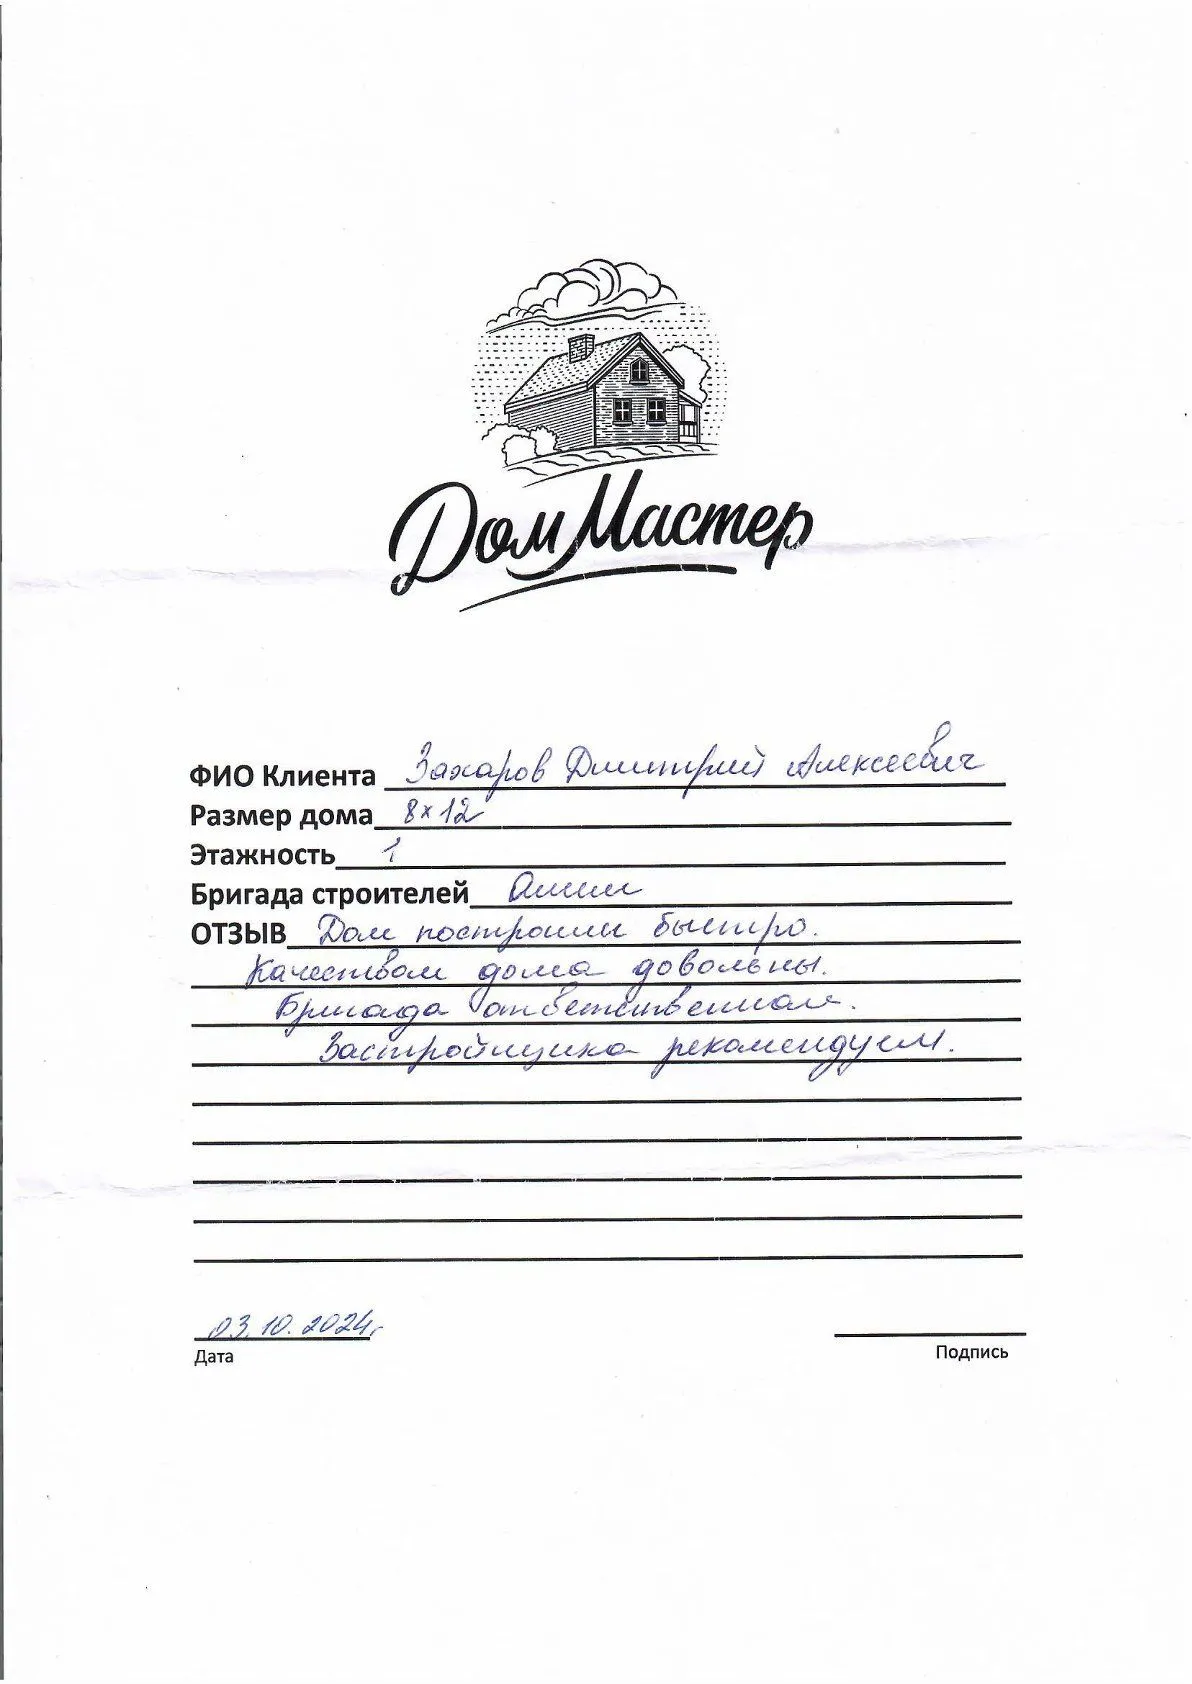 Дом Мастер
ФИО Клиента Захаров Дмитрий Алексеевич
Размер дома 8х12
Этажность 1
Бригада строителей
ОТЗЫВ Дом построили быстро.
Качеством дома довольны.
Бригада ответственная.
Застройщика рекомендуем.
03.10.2024г
Дата
Подпись